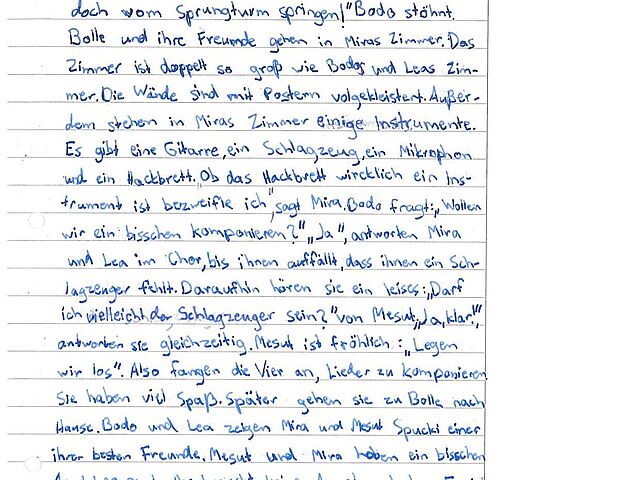 doch vom Sprungturm springen!" Bodo stöhnt.
Bolle und ihre Freunde gehen in Miras Zimmer. Das
Zimmer ist doppelt so groß wie Bodos und Leas Zim-
mer. Die Wände sind mit Postern volgekleistert. Außer-
dem stehen in Miras Zimmer einige Instrumente.
Es gibt eine Gitarre, ein Schlagzeug, ein Mikrophon
und ein Hackbrett. "Ob das Hackbrett wircklich ein Ins-
trument ist bezweifle ich", sagt Mira. Bodo fragt: „Wollen
wir ein bisschen komponieren?" „Ja", antworten Mira
und Lea im Chor, bis ihnen auffällt, dass ihnen ein Sch-
lagzeuger fehlt. Daraufhin hören sie ein leises: „Darf
ich vielleicht der Schlagzeuger sein?" von Mesut. „Ja, klar!",
antworten sie gleichzeitig. Mesut ist fröhlich: „Legen
wir los". Also fangen die Vier an, Lieder zu komponieren.
Sie haben viel Spaß. Später gehen sie zu Bolle nach
Hause. Bodo und Lea zeigen Mira und Mesut Spucki einer
ihrer besten Freunde. Mesut und Mira haben ein bisschen